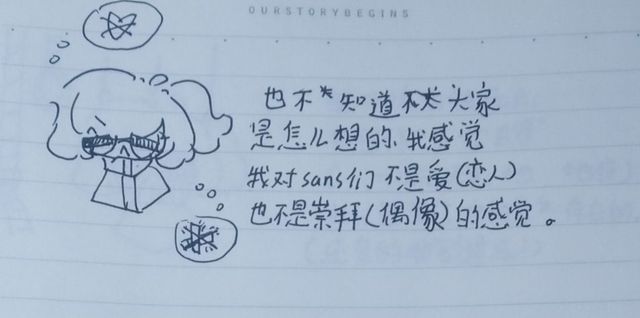 OURSTORYBEGINS
也不知道大家
是怎么想的,我感觉
我对sans们不是爱(恋人)
也不是崇拜(偶像)的感觉。